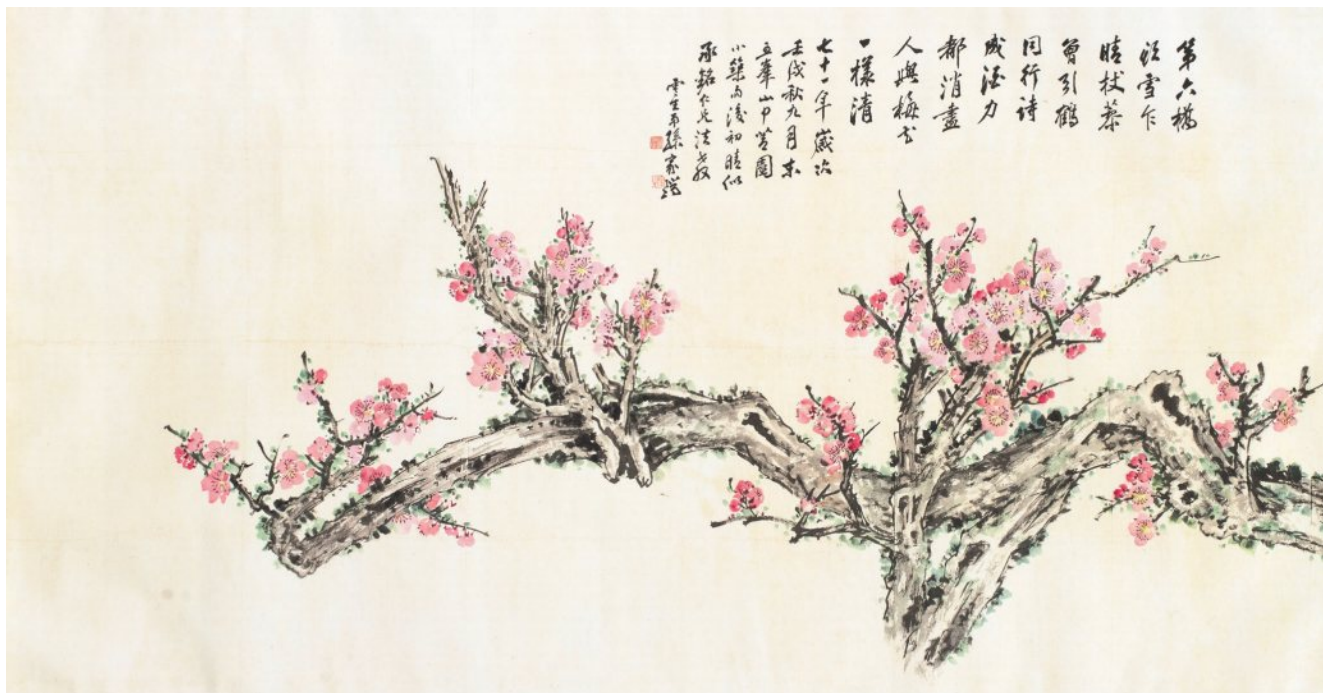 第六橋
頭雪乍
晴杖藜
曾引鶴
同行詩
成酒力
都消盡
人與梅花
一樣清
七十一年歲次
壬戌秋九月
五峯山中園
小築雨後初晴似
承銘仁兄法教
雲生弟孫家瑞